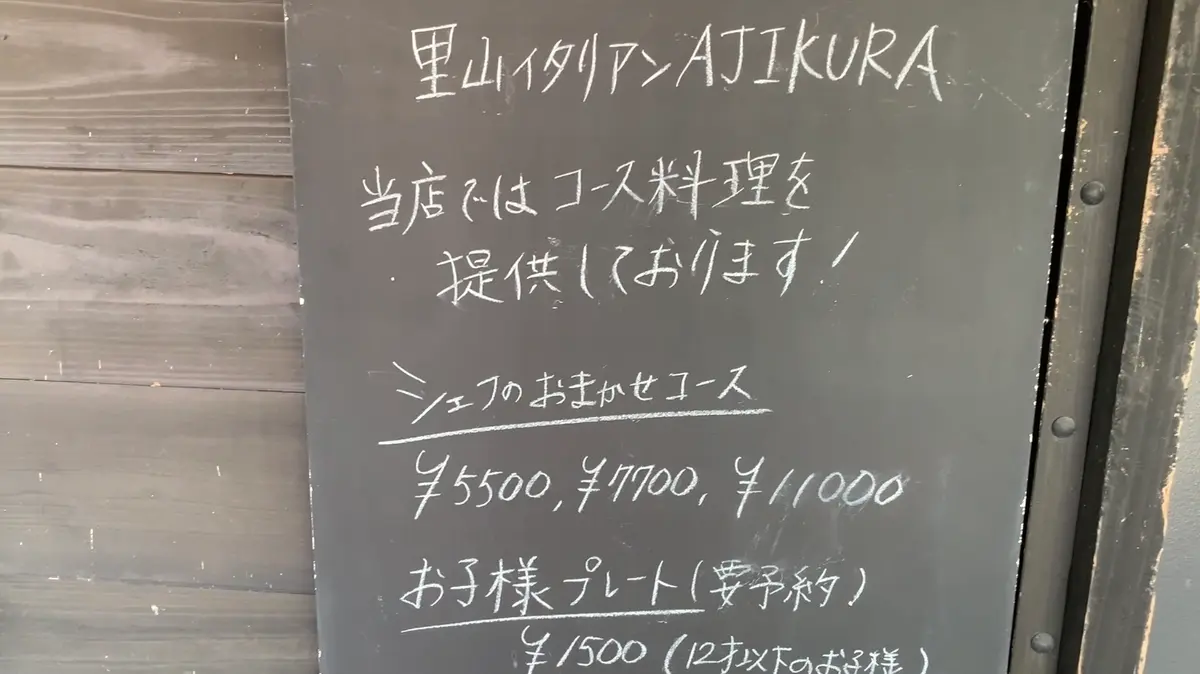 里山イタリアンAJIKURA
当店ではコース料理を
提供しております!
シェフのおまかせコース
¥5500, ¥7700, ¥11000
お子様プレート(要予約)
¥1500(12才以下のお子様)